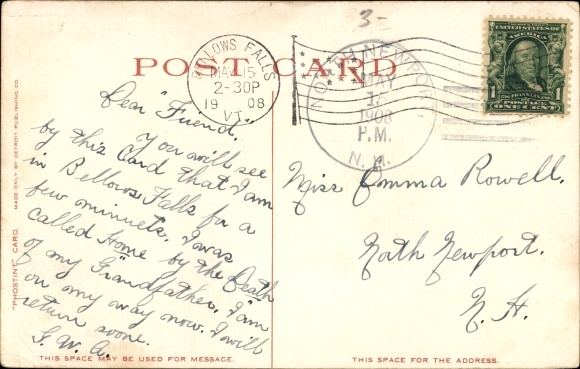 3-
POST CARD
BELLOWS FALLS
MAY 15
2-30P
19 08
VT.
NORTH NEWPORT
MAY
1908
P.M.
N.H.
UNITED STATES OF
AMERICA
1 1
POSTAGE
ONE CENT
Dear "Friend.
You will see
by this Card that I am
in Bellows Falls for a
few minuets. I was
called Home by the Death
of my "Grandfather. I "am
on my way now. I will
return soone.
F. W. A.
Miss Emma Rowell.
North Newport.
N. H.
"PHOSTINT" CARD. MADE ONLY BY DETROIT PUBLISHING CO.
THIS SPACE MAY BE USED FOR MESSAGE.
THIS SPACE FOR THE ADDRESS.